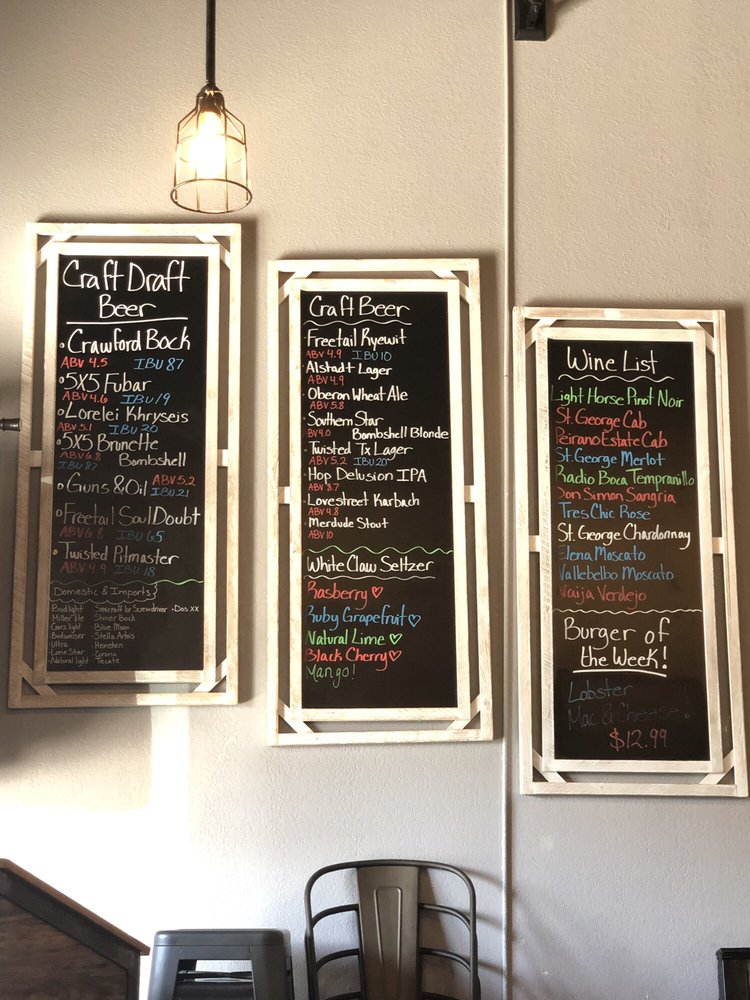 Craft Draft
Beer
• Crawford Bock
ABV 4.5 IBU 87
• 5X5 Fubar
ABV 4.6 IBU 19
• Lorelei Khryseis
ABV 5.1 IBU 20
• 5X5 Brunette
ABV 6.8 Bombshell
IBU 87
• Guns & Oil ABV 5.2
IBU 21
• Freetail Soul Doubt
ABV 6.8 IBU 65
• Twisted Pitmaster
ABV 4.9 IBU 18
Domestic & Imports
Budlight • Smirnoff Ice Screwdriver • Dos XX
Miller lite Shiner Bock
Coors light • Blue Moon
Budweiser • Stella Artois
Ultra • Heineken
• Lone Star • Corona
Natural light • Tecate
Craft Beer
• Freetail Ryewit
ABV 4.9 IBU 10
Alstadt Lager
ABV 4.9
Oberon Wheat Ale
ABV 5.8
Southern Star
BV 4.0 Bombshell Blonde
Twisted Tx Lager
ABV 5.2 IBU 20
Hop Delusion IPA
ABV 8.7
Lovestreet Karbach
ABV 4.8
Merdude Stout
ABV 10
White Claw Seltzer
Rasberry ♡
Ruby Grapefruit ♡
Natural Lime ♡
Black Cherry ♡
Mango!
Wine List
Light Horse Pinot Noir
St. George Cab
Peirano Estate Cab
St. George Merlot
Radio Boca Tempranillo
Don Simon Sangria
Tres Chic Rose
St. George Chardonnay
Elena Moscato
Vallebelbo Moscato
Naija Verdejo
Burger of
the Week!
Lobster
Mac & Cheese!
$12.99